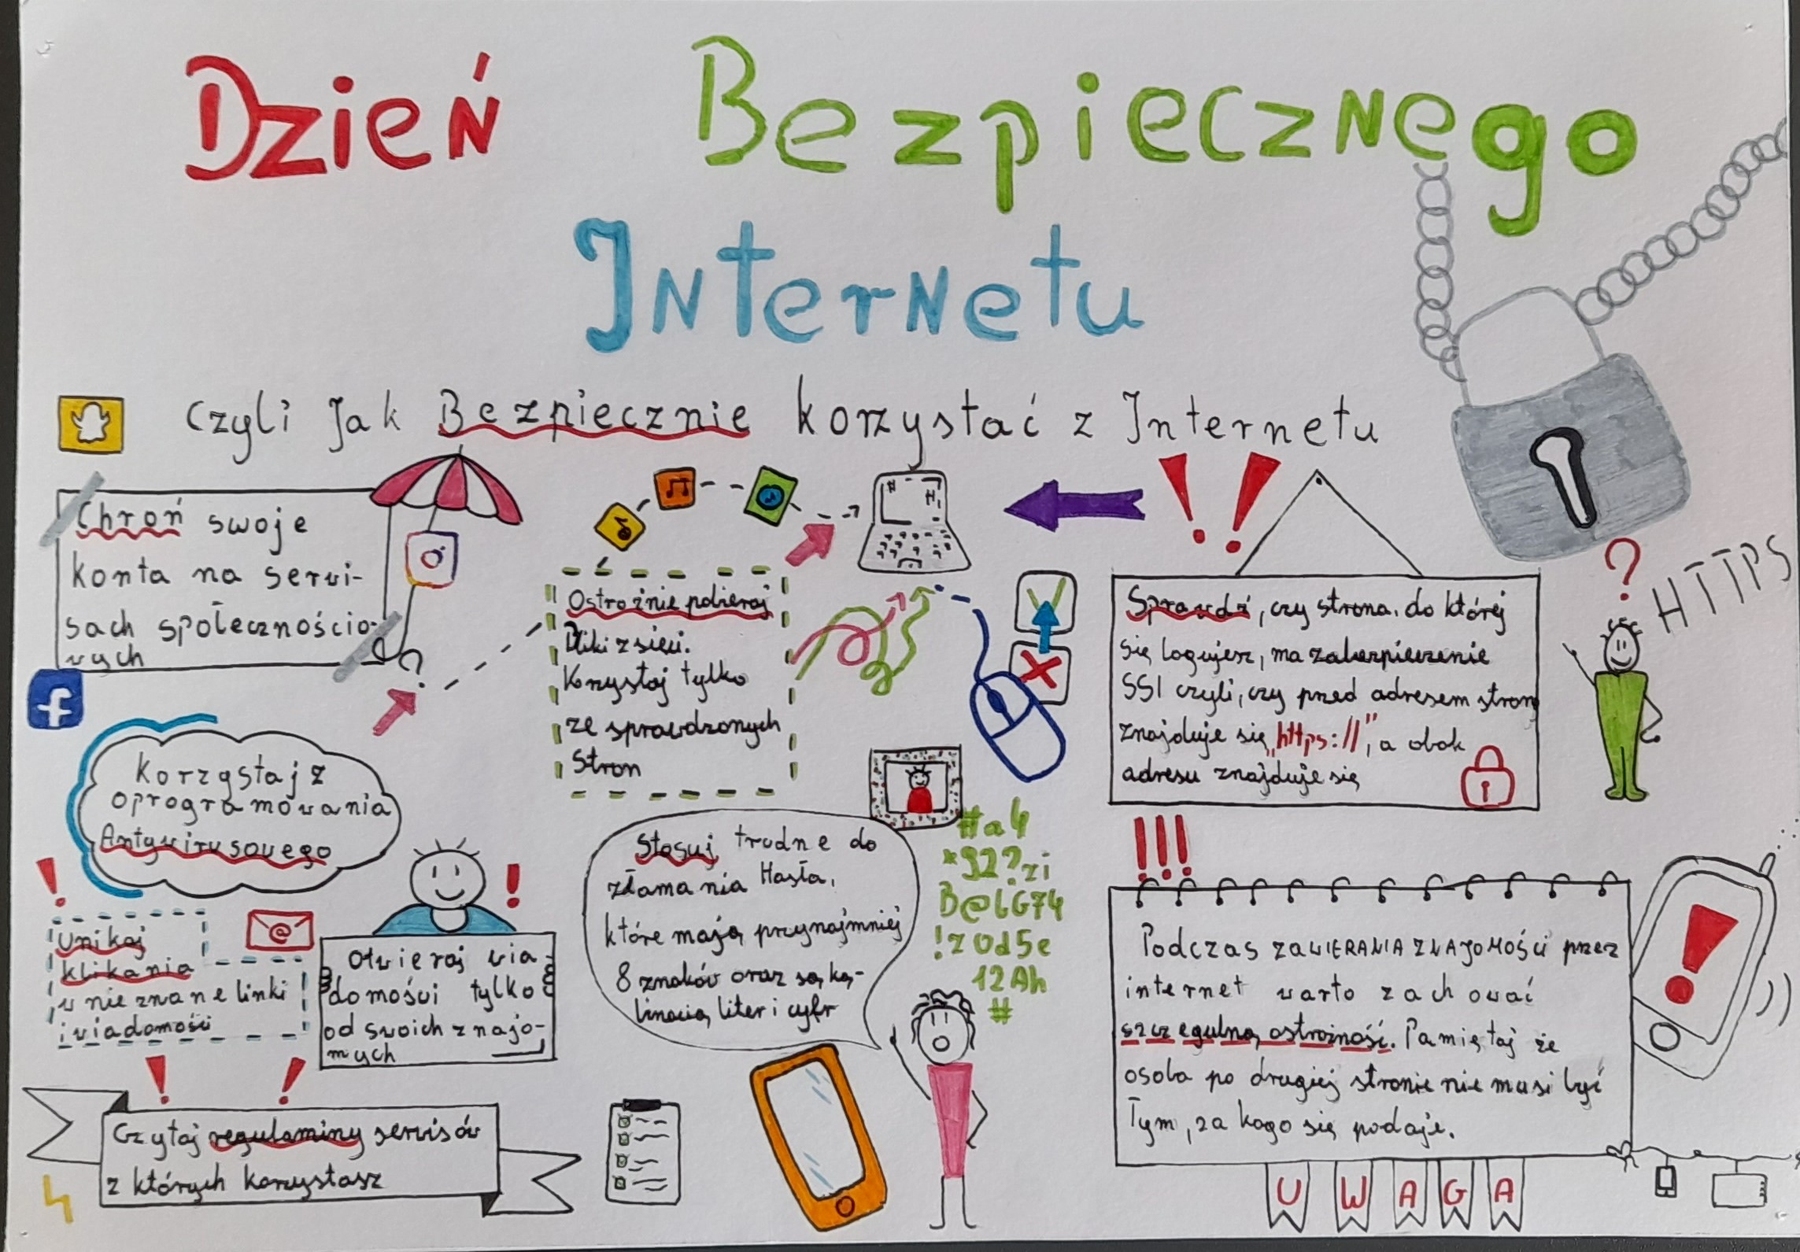 Dzień Bezpiecznego
Internetu
Czyli Jak Bezpiecznie korzystać z Internetu
Chroń swoje
konta na serwi-
sach społecznościo-
wych
Ostrożnie pobieraj
Pliki z sieci.
Korzystaj tylko
ze sprawdzonych
Stron
Sprawdź, czy strona, do której
się logujesz, ma zabezpieczenie
SSl czyli, czy przed adresem stron
znajduje się „https://”, a obok
adresu znajduje się
?
HTTPS
?
Korzystaj z
oprogramowania
Antywirusowego
!
Unikaj
klikania
w nieznane linki
i wiadomości
@
!
Otwieraj wia-
domości tylko
od swoich znajo-
mych
Stosuj trudne do
złamania Hasła,
które mają przynajmniej
8 znaków oraz są ką-
linacią liter i cyfr
#a4
*92?zi
B@6G74
!z0d5e
12Ah
#
!!!
Podczas ZAWIERANIA ZNAJOMOŚCI przez
internet warto zachować
szczegulną ostrożność. Pamiętaj że
osoba po drugiej stronie nie musi być
Tym, za kogo się podaje.
!
UWAGA
! !
Czytaj regulaminy serwisów
z których korzystasz